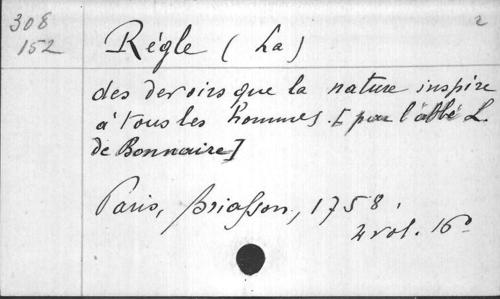 308
152
2
Régle (La)
des devoirs que la nature inspire
à tous les hommes. [par l'abbé L.
de Bonnaire]
Paris, Briasson, 1758.
4 vol. 16°